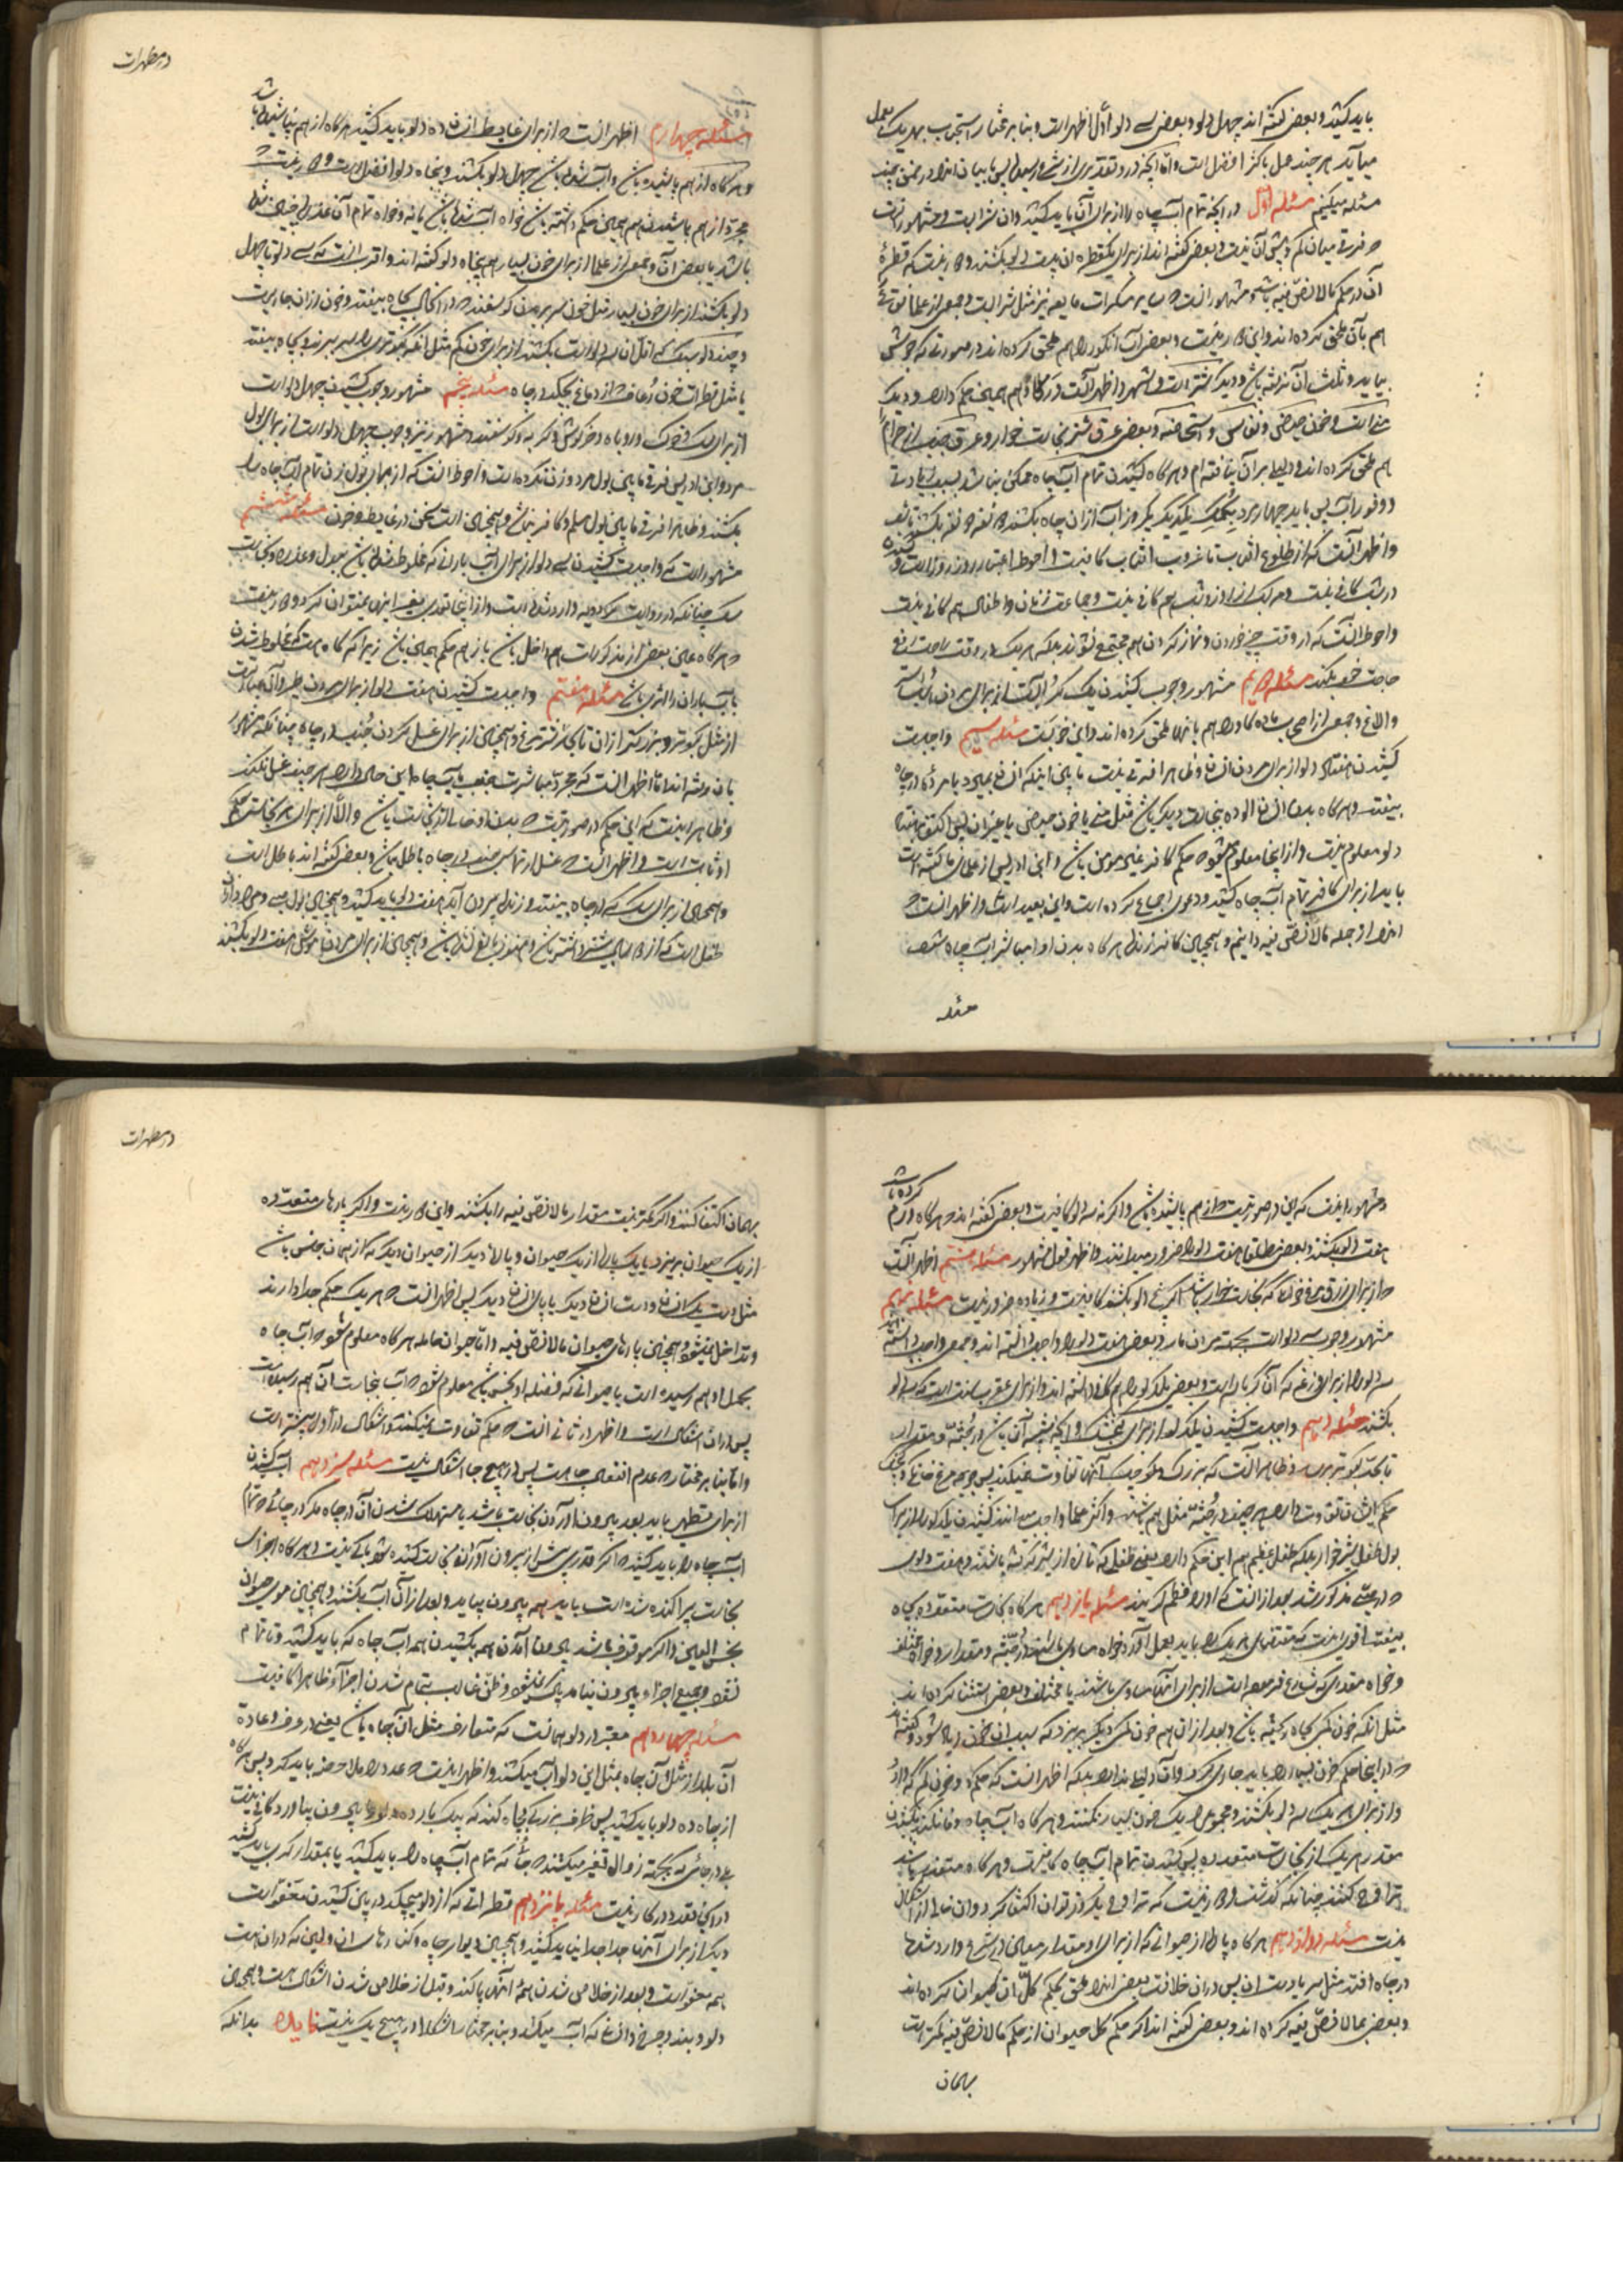 باید کشید و بعضی گفته اند چهل دلو و بعضی سی دلو و اول اظهر است و بنا بر مختار استحباب بهر یک عمل
میآید هر چند عمل باکثر افضل است و اما آنچه در تقدیری از شرع رسیده پس با بیان آنها در ضمن چند
مسئله میکنیم مسئله اول در آنچه تمام آب چاه را از برای آن باید کشید و آن شراب است و مشهور آنست
فرقی میان کم و بیش آن نیست و بعضی گفته اند از برای یکقطره آن بیست دلو بکشند و دور نیست که قطرهٔ
آن در حکم مالانصّ فیه باشد و مشهور آنست که سایر مسکرات مایعه نیز مثل شرابست و جمعی از علما
هم بآن ملحق کرده اند و این دور نیست و بعضی آب انگور را هم ملحق کرده اند در صورتی که جوش
بیاید و ثلث آن نرفته باشد و دیگر شتر است و اشهر و اظهر آنست که گاو هم همین حکم دارد و دیگر
منی است و خون حیض و نفاس و استحاضه و بعضی عرق شتر نجاست خوار و عرق جنب از حرام را
هم ملحق کرده اند و دلیلی بر آن نیافته ام و هر گاه کشیدن تمام آب چاه ممکن نباشد بسبب زیادتی
و وفور آب پس باید چهار مرد بکمک یکدیگر یکروز آب از آن چاه بکشند دو نفر دو نفر بکشند
و اظهر آنست که از طلوع آفتاب تا غروب آفتاب کافیست و احوط اعتبار روز روزه است و
در شب کافی نیست و مرکب از روز و شب هم کافی نیست و جماعت زنان و اطفال هم کافی نیست
و احوط آنست که در وقت چیز خوردن و نماز کردن هم مجتمع نشوند بلکه هر یک در وقت راحت رفع
حاجت خود بکند مسئله دویم مشهور وجوب کشیدن یک کُر آب است از برای مردن
والاغ و جمعی از اصحاب ماده گاو را هم باینها ملحق کرده اند و این خوبست مسئله سیم واجبست
کشیدن هفتاد دلو از برای مردن انسان و ظاهرا فرقی نیست ما بین اینکه انسان بمیرد یا مرده در چاه
بیفتد و هر گاه بدن انسان آلوده بنجاست دیگر باشد مثل منی یا خون حیض یا غیر آن پس اکتفا بهفتاد
دلو معلوم نیست و از اینجا معلوم میشود که حکم کافر غیر مومن باشد و ابن ادریس از علمای ما گفته است
باید از برای کافر تمام آب چاه کشید و دعوی اجماع کرده است و این بعید است و اظهر آنست که
آنرا از جمله مالانصّ فیه دانیم و همچنین کافر زنده هر گاه بدن او مباشر آب چاه شود
مسئله
در مطهرات
مسئله چهارم اظهر آنست که از برای غایط انسان ده دلو باید کشید هر گاه از هم نپاشیده باشد
و هر گاه از هم پاشیده باشد و آب شده باشد چهل دلو بکشند و پنجاه دلو افضل است و دور نیست که
مجرد از هم پاشیدن هم همین حکم داشته باشد خواه آب شده باشد یا نه و خواه تمام آن عذره چنین شده
باشد یا بعض آن و جمعی از علما از برای خون بسیار هم پنجاه دلو گفته اند و اقرب آنست که سی دلو تا چهل
دلو بکشند از برای خون بسیار مثل خون سر بریدن گوسفند که در آنحال بچاه بیفتد و خون از آن جاریست
و چند دلو سبک که اقل آن سه دلو است بکشند از برای خون کم مثل آنکه کبوتری را سر ببرند و بچاه بیفتد
یا مثل قطرات خون رعاف که از دماغ بچکد در چاه مسئله پنجم مشهور وجوب کشیدن چهل دلو است
از برای سگ و خوک و روباه و خرگوش و گربه و گوسفند و مشهور نیز وجوب چهل دلو است از برای بول
مرد و ابن ادریس فرقی ما بین بول مرد و زن نکرده است و احوط آنست که از برای بول زن تمام آب چاه را
بکشند و ظاهرا فرقی ما بین بول مسلم و کافر نباشد و همچنین است سخن در غایط و خون مسئله ششم
مشهور است که واجبست کشیدن سی دلو از برای آب بارانی که مخلوط شده باشد ببول و عذره و نجاست
سگ چنانکه در روایت کردویه وارد شده است و از اینجا تعدی بغیر اینها نمیتوان کرد و دور نیست
که هر گاه عین بعض از مذکورات هم داخل باشد باز هم حکم همین باشد زیرا که گاه هست که مخلوط شدن
بآب باران را اثری باشد مسئله هفتم واجبست کشیدن هفت دلو از برای مردن طیر و آن عبارتست
از مثل کبوتر و بزرگتر از آن تا بشتر مرغ و همچنین از برای غسل کردن جُنب در چاه چنانکه مشهور
بآن رفته اند اما اظهر آنست که مجرد مباشرت جنب بآب چاه این حال دارد هر چند غسل نکند
و ظاهر اینست که این حکم در صورتیست که بدن او خالی از نجاست باشد والا از برای هر نجاستی حکم
او ثابت است و اظهر آنست که غسل ارتماسی جنب در چاه باطل باشد و بعضی گفته اند باطل است
و همچنین از برای سگ که در چاه بیفتد و زنده بیرون آید هفت دلو باید کشید و همچنین بول صبی و مراد از آن
طفل است که از دو سال بیشتر داشته باشد و هنوز بالغ نشده باشد و همچنین از برای مردن موش هفت دلو بکشند
و مشهور اینست که این در صورتیست که از هم پاشیده باشد و اگر نه سه دلو کافیست و بعضی گفته اند هر گاه ورم کرده باشد
هفت دلو بکشند و بعضی مطلقا هفت دلو را ضرور میدانند و اظهر قول مشهور مسئله هشتم اظهر آنست
که از برای ذرق مرغ خانگی که نجاست خوار باشد اگر پنج دلو بکشند کافیست و زیاده ضرور نیست مسئله نهم
مشهور وجوب سه دلو است بجهت مردن مار و بعضی هفت دلو را واجب دانسته اند و جمعی واجب دانسته اند
سه دلو را از برای وزغه که آن کرباسه است و بعضی یکدلو را هم کافی دانسته اند و از برای عقرب سنت است که سه دلو
بکشند مسئله دهم واجبست کشیدن یکدلو از برای گنجشک و آنچه شبیه آن باشد در جُثّه و مقدار
تا بحد کبوتر نرسد و ظاهر آنست که بزرگ و کوچک آنها تفاوت نمیکند پس جوجه مرغ خانگی و گنجشک
حکم ایشان تفاوت دارد هر چند در جُثّه مثل هم باشند و اکثر علما واجب میدانند کشیدن یکدلو را از برای
بول طفل شیرخوار بلکه طفل فطیم هم این حکم دارد یعنی طفلی که تازه از شیر گرفته باشند و هفت دلوی
که در صبی مذکور شد بعد از آنست که او را فطیم گویند مسئله یازدهم هر گاه نجاست متعدد بچاه
بیفتد اقوی اینست که مقتضای هر یک را باید بعمل آورد خواه مساوی باشند در جُثّه و مقدار و خواه مختلف
و خواه مقداری که شارع فرموده است از برای آنها مساوی باشند یا مختلف و بعضی استثنا کرده اند
مثل آنکه خون کمی بچاه ریخته باشد و بعد از آن هم خون کمی دیگر بریزد که بسبب آن خون زیاد شود و گفته اند
که در اینجا حکم خون بسیار را باید جاری کرد و آن دلیلی ندارد بلکه اظهر آنست که حکم دو خون کم که دارد
و از برای هر یک سه دلو بکشند و مجموع را یک خون بسیار نکنند و هر گاه آب چاه وفا نکند بکشیدن
مقدر هر یک از نجاست متعدده پس کشیدن تمام آب چاه کافیست و هر گاه متعذر باشد
تراوح کنند چنانکه گذشت و دور نیست که تراوح یکروز توان اکتفا کرد و آن خالی از اشکال
نیست مسئله دوازدهم هر گاه پاره از حیوانی که از برای او مقدار معین در شرع وارد شده
در چاه افتد مثل سر یا دست آن پس در آن خلافست بعضی آنرا ملحق بحکم کل آن حیوان کرده اند
و بعضی بمالانصّ فیه کرده اند و بعضی گفته اند اگر حکم کل حیوان از حکم مالانصّ فیه کمتر است
بهمان
در مطهرات
بهمان اکتفا کنند و اگر کمتر نیست مقدار مالانصّ فیه را بکشند و این دور نیست و اگر پارهای متعدّده
از یک حیوان بریزد یا یک پاره از یک حیوان و پاره دیگر از حیوان دیگر که از همان جنس باشد
مثل دست یک انسان و دست انسان دیگر یا پای انسان دیگر پس اظهر آنست که هر یک حکم جدا دارند
و تداخل نمیشود و همچنین پارهای حیوان مالانصّ فیه و اما حیوان حامله هر گاه معلوم شود که آب چاه
بحمل او هم رسیده است یا حیوانی که فضله او نجس باشد معلوم شود که آب بنجاست آن هم رسیده است
پس در آن اشکال است و اظهر در ثانی آنست که حکم تفاوت نمیکند و اشکال در اول بیشتر است
و اما بنا بر مختار که عدم انفعال چاهست پس در هیچ جا اشکال نیست مسئله سیزدهم آب کشیدن
از برای تطهیر باید بعد بیرون آوردن نجاست باشد یا مستهلک شدن آن در چاه مگر در جائی که تمام
آب چاه را باید کشید که اگر قدری پیش از بیرون آوردن نجاست کشیده شود باکی نیست و هر گاه اجزای
نجاست پراکنده شده است باید همه بیرون بیاید و بعد از آن آب بکشند و همچنین موی حیوان
نجس العین و اگر موقوف باشد بیرون آمدن همه بکشیدن همه آب چاه که باید کشید و تا تمام
نشود و جمیع اجزاء بیرون نیامد پاک نمیشود و ظن غالب بتمام شدن اجزاء ظاهرا کافیست
مسئله چهاردهم معتبر در دلو همانست که متعارف مثل آن چاه باشد یعنی در عرف و عادت
آن بلد از مثل آن چاه بمثل این دلو آب میکشند و اظهر اینست که عدد را ملاحظه باید کرد پس هر گاه
از چاه ده دلو باید کشید پس ظرف بزرگی بچاه کنند که بیک بار ده دلو بیرون بیاورد کافی نیست
بلی در جائی که بجهت زوال تغیر میکشند یا جائی که تمام آب چاه را باید کشید یا بمقدار کری باید کشید
در آنجا تعدد در کار نیست مسئله پانزدهم قطراتی که از دلو میچکد در بین کشیدن معفو است
دیگر از برای آنها جدا جدا نباید کشید و همچنین دیوار چاه و کنارهای آن و زمین که در آن هست
همه معفو است و بعد از خلاص شدن همهٔ آنها پاکند و قبل از خلاص شدن اشکال هست و همچنین
دلو و بند و چرخ و انسانی که آب میکشد و بنا بر مختار اشکال در هیچ یک نیست فایده بدانکه